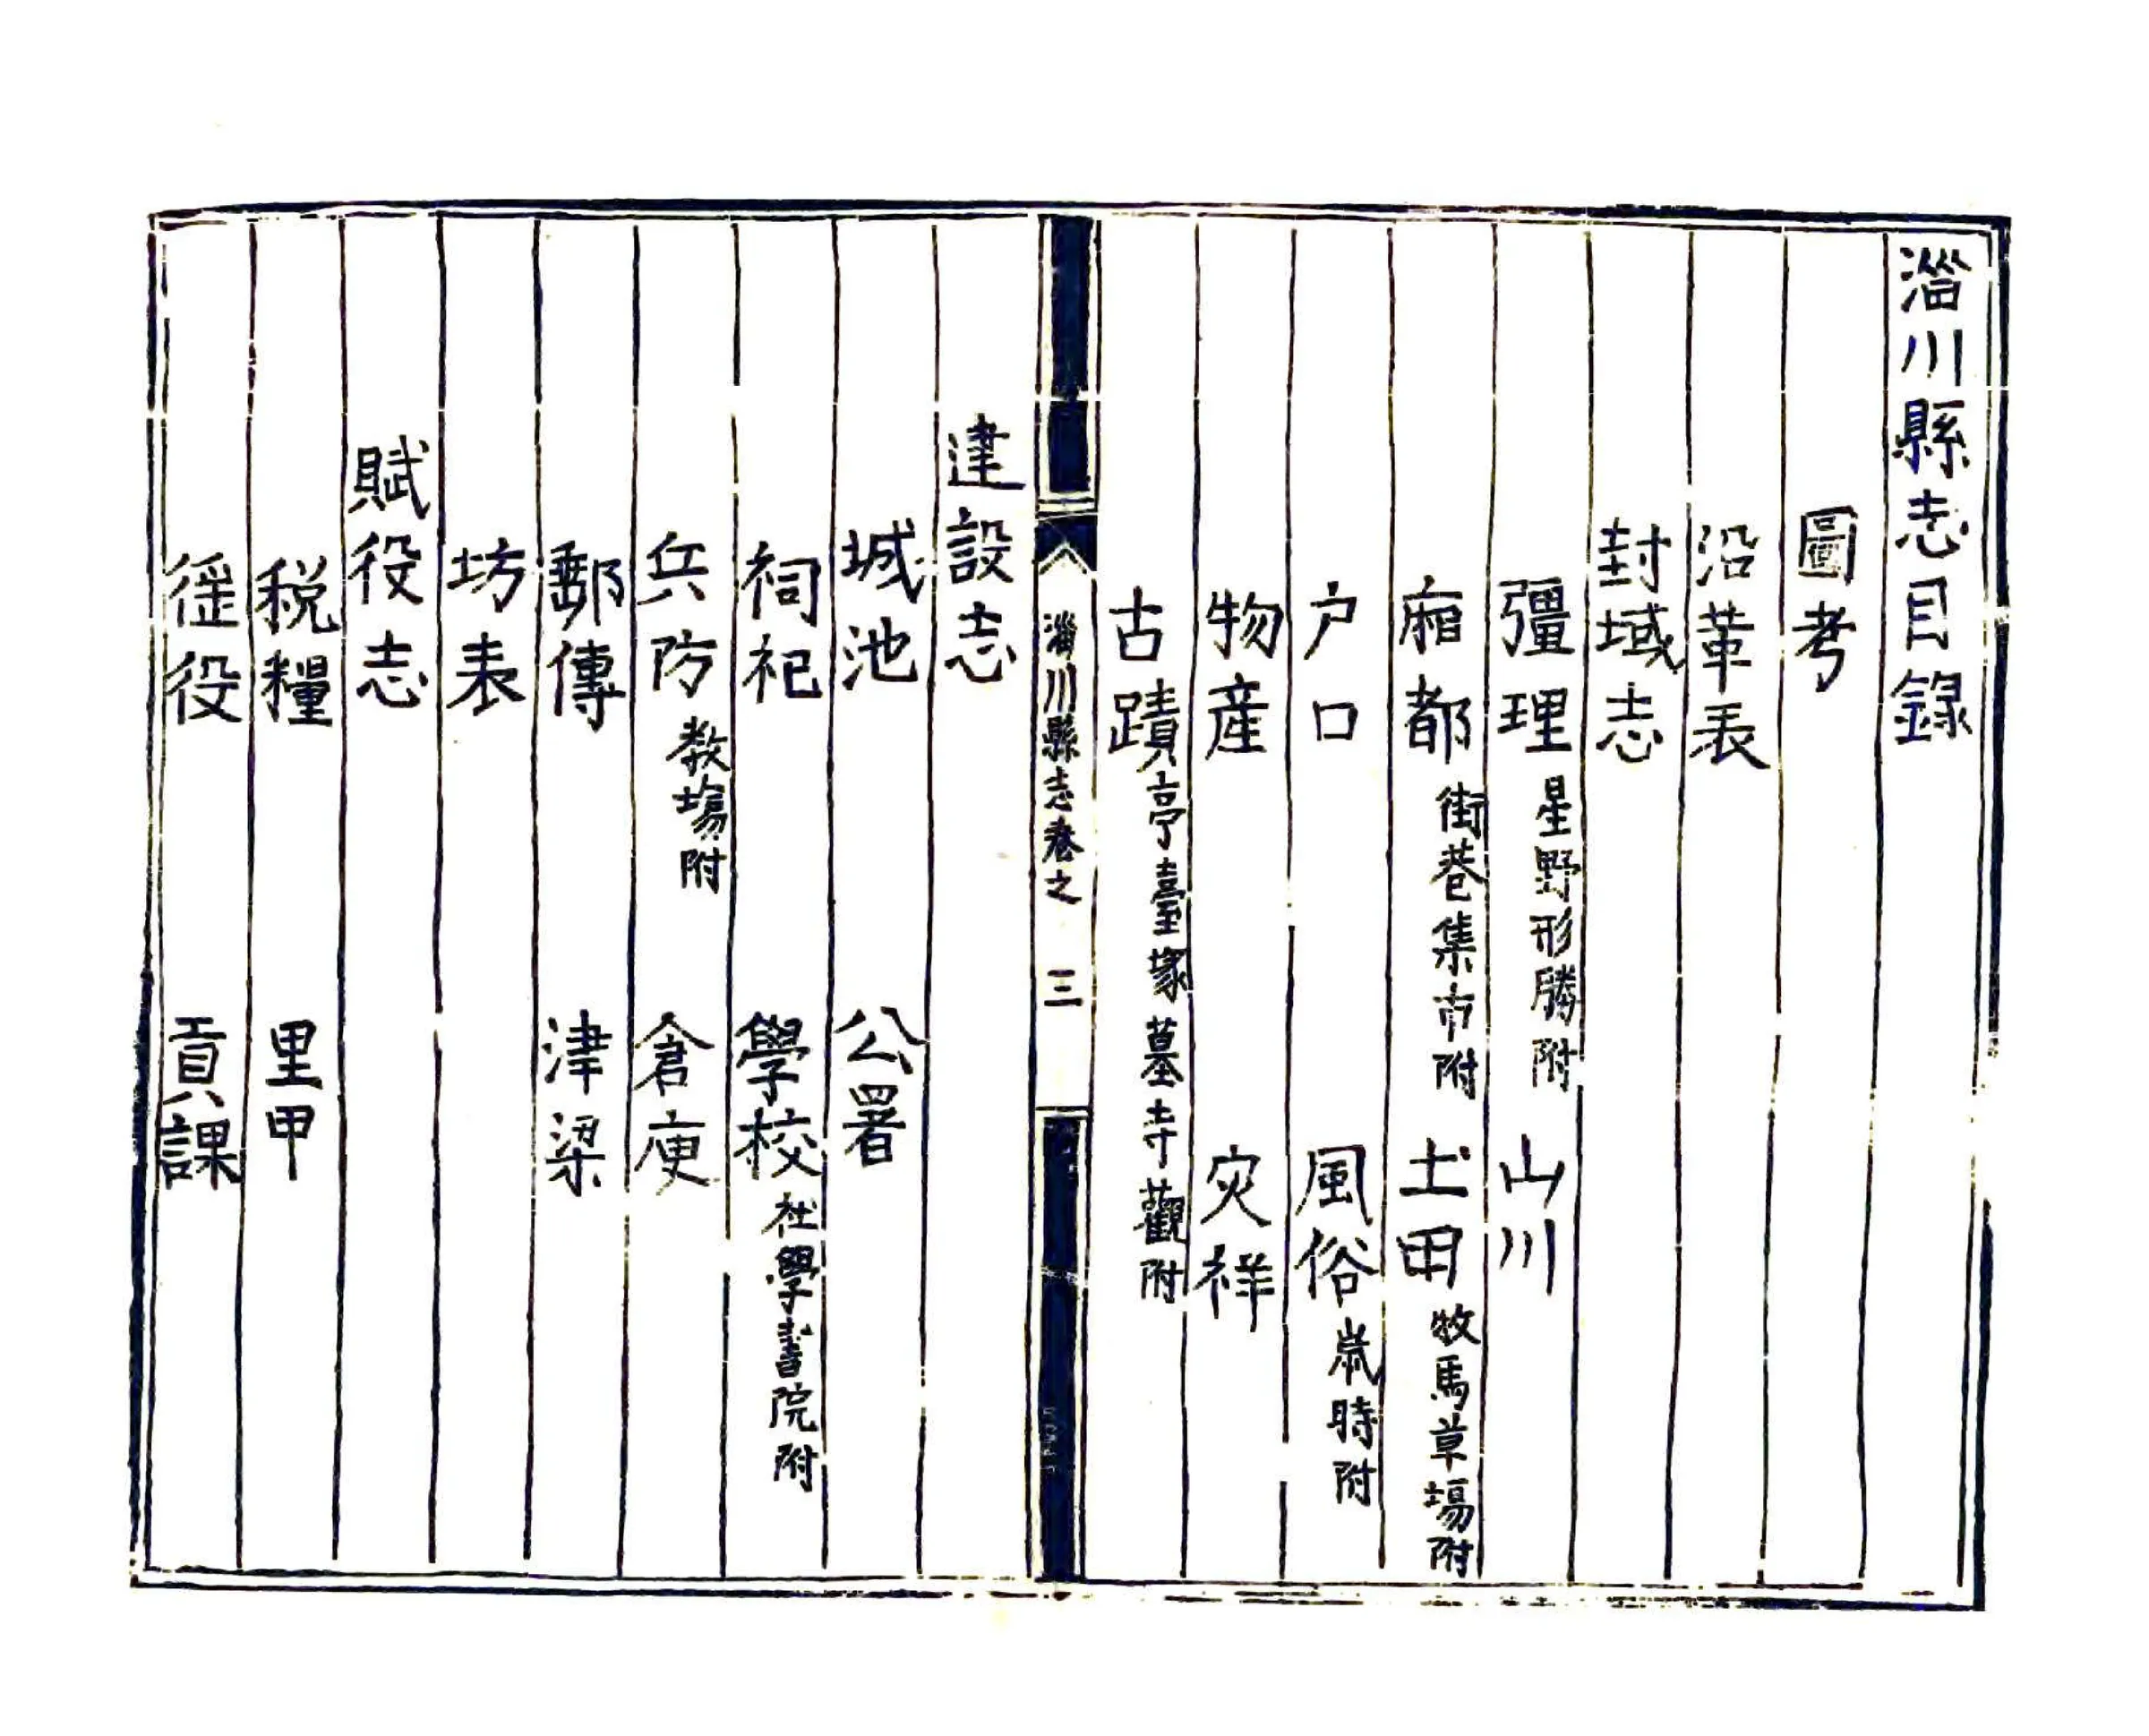 淄川縣志目錄
圖考
沿革表
封域志
彊理星野形勝附 山川
廂都街巷集市附 土田牧馬草場附
户口 風俗歲時附
物產 灾祥
古蹟亭臺塚墓寺觀附
淄川縣志卷之 三
建設志
城池 公署
祠祀 學校社學書院附
兵防教塲附 倉庾
郵傳 津梁
坊表
賦役志
税糧 里甲
徭役 貢課